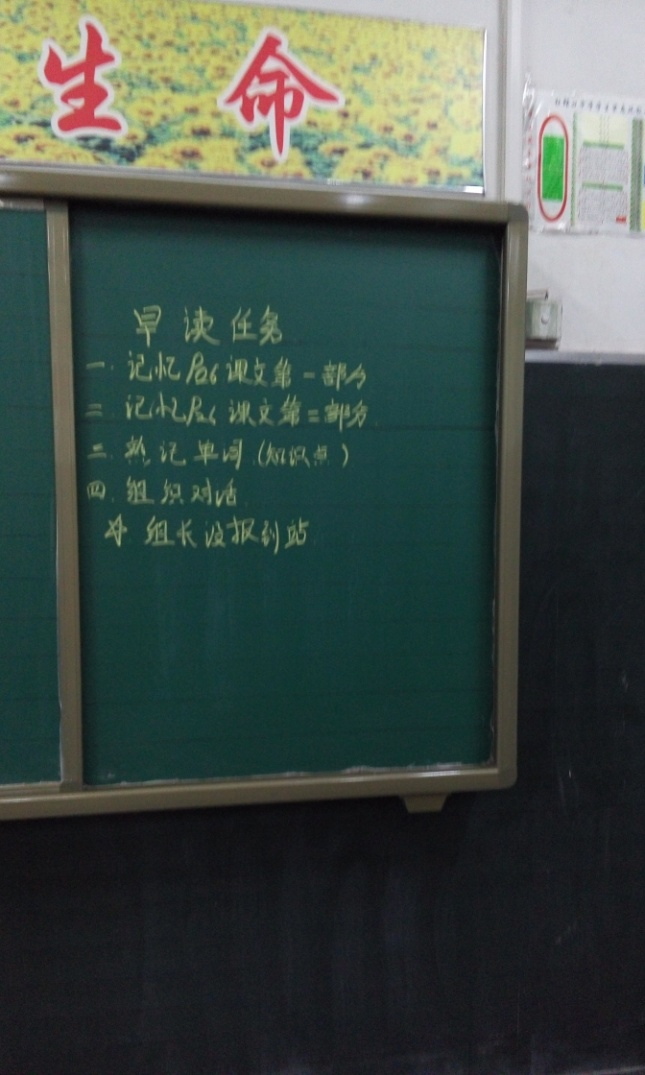 生命
早读任务
一. 记忆P26课文第一部分
二. 记忆P26课文第二部分
三. 熟记单词(知识点)
四. 组织对话
组长没报到站